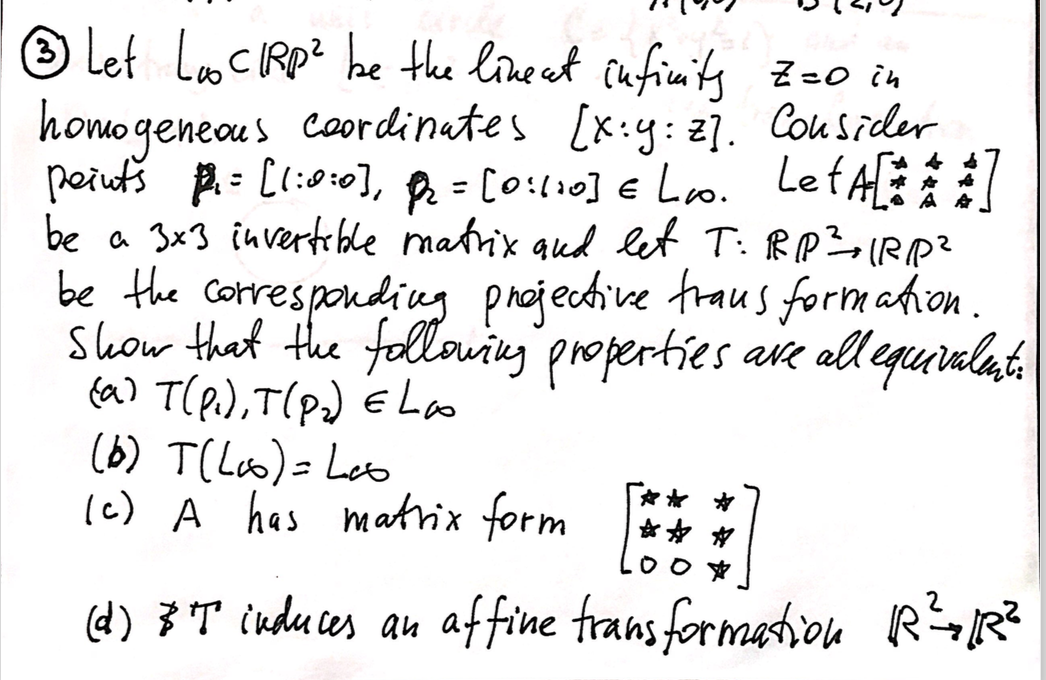 ③ Let L∞ ⊂ RP² be the line at infinity z=0 in
homogeneous coordinates [x:y:z]. Consider
points p₁ = [1:0:0], p₂ = [0:1:0] ∈ L∞. Let A=[* * * / * * * / * * *]
be a 3x3 invertible matrix and let T: RP² → RP²
be the corresponding projective transformation.
Show that the following properties are all equivalent:
(a) T(p₁), T(p₂) ∈ L∞
(b) T(L∞) = L∞
(c) A has matrix form [* * * / * * * / 0 0 *]
(d) T induces an affine transformation R² → R²